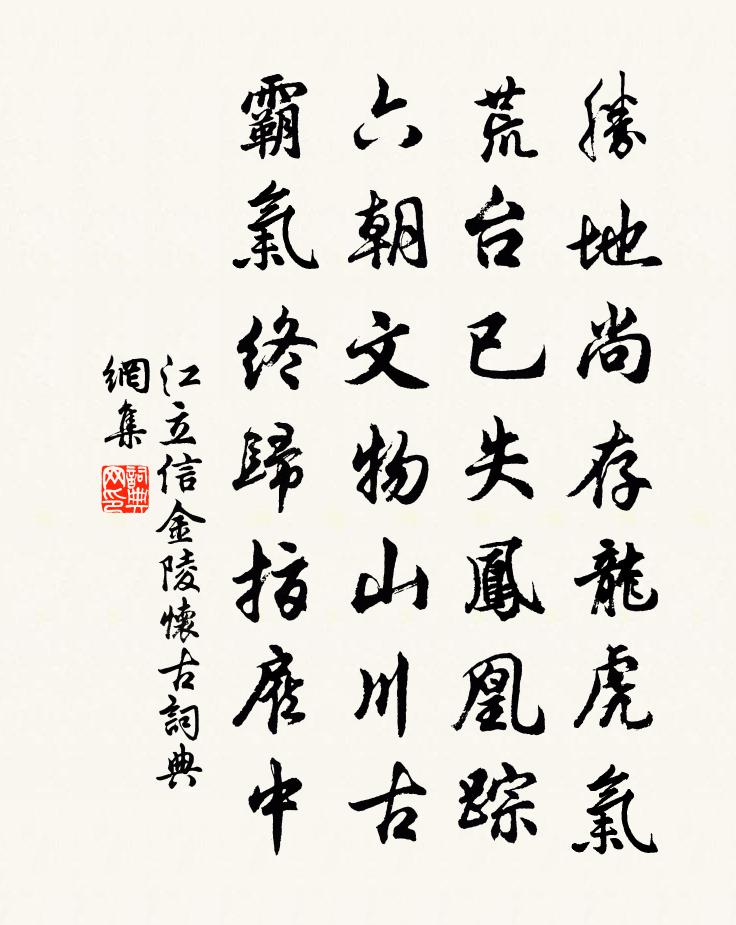 勝地尚存龍虎氣
荒台已失鳳凰踪
六朝文物山川古
霸氣終歸指顧中
江立信金陵懷古詞典
網集
詞典網印